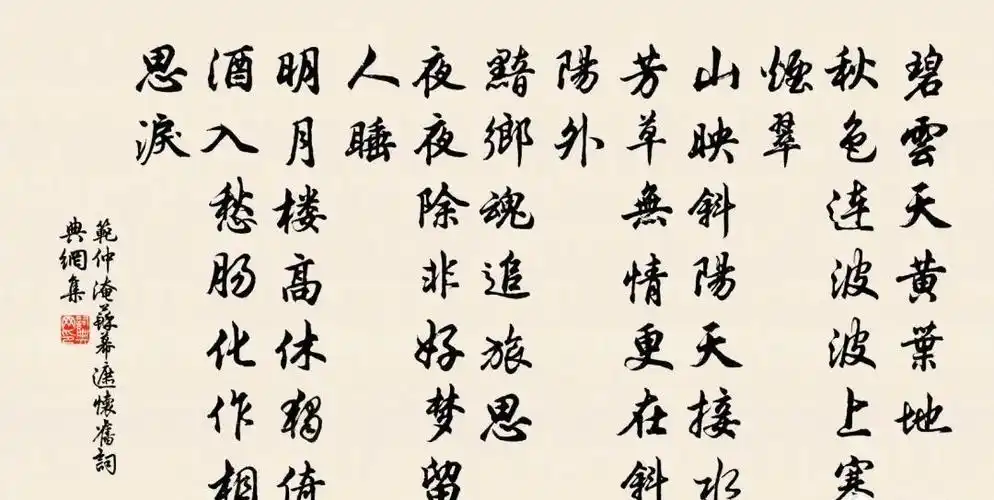 碧雲天黄葉地
秋色連波波上寒
煙翠
山映斜陽天接水
芳草無情更在斜
陽外
黯鄉魂追旅思
夜夜除非好梦留
人睡
明月楼高休獨倚
酒入愁肠化作相
思淚
範仲淹蘇幕遮懷舊詞
典網集